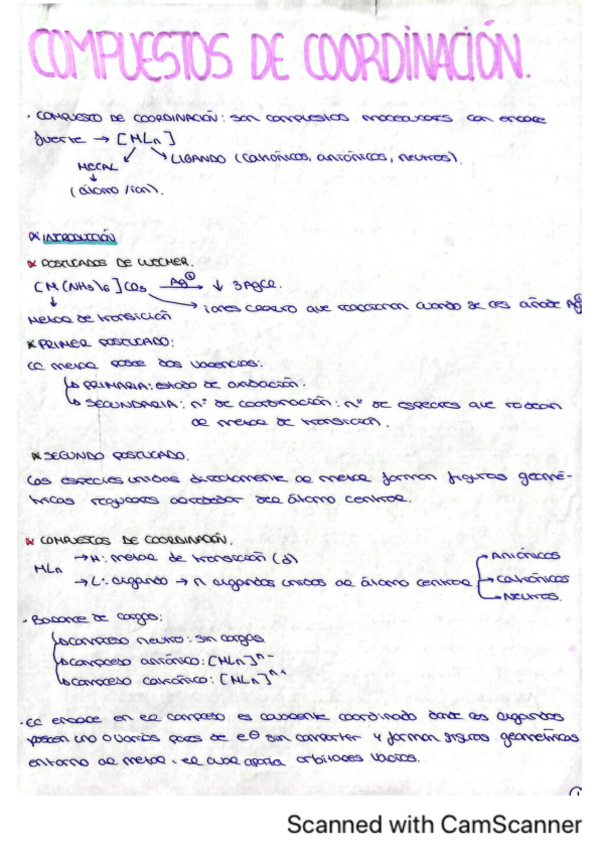 COMPUESTOS DE COORDINACIÓN.
· COMPUESTO DE COORDINACIÓN: son compuestos moleculares con enlace
fuerte → [MLn]
METAL
LIGANDO (catiónicos, aniónicos, neutros).
(átomo/ion).
INTRODUCCIÓN
POSTULADOS DE WERNER.
[M(NH3)6]Cl3 Ag⊕ → ↓ 3AgCl.
Metal de transición
iones cloruro que reaccionan cuando se les añade Ag⊕
PRIMER POSTULADO:
El metal posee dos valencias:
PRIMARIA: estado de oxidación.
SECUNDARIA: nº de coordinación: nº de especies que rodean
al metal de transición.
SEGUNDO POSTULADO.
Las especies unidas directamente al metal forman figuras geomé-
tricas regulares alrededor del átomo central.
COMPUESTOS DE COORDINACIÓN.
MLn
→ M: metal de transición (d)
→ L: ligando → n ligandos unidos al átomo central
Aniónicos
Catiónicos
Neutros.
· Balance de cargas:
complejo neutro: sin cargas
complejo aniónico: [MLn]ⁿ⁻
complejo catiónico: [MLn]ⁿ⁺
· El enlace en el complejo es covalente coordinado donde los ligandos
poseen uno o varios pares de e⊖ sin compartir y forman figuras geométricas
entorno al metal, el cual aporta orbitales vacíos.
Scanned with CamScanner